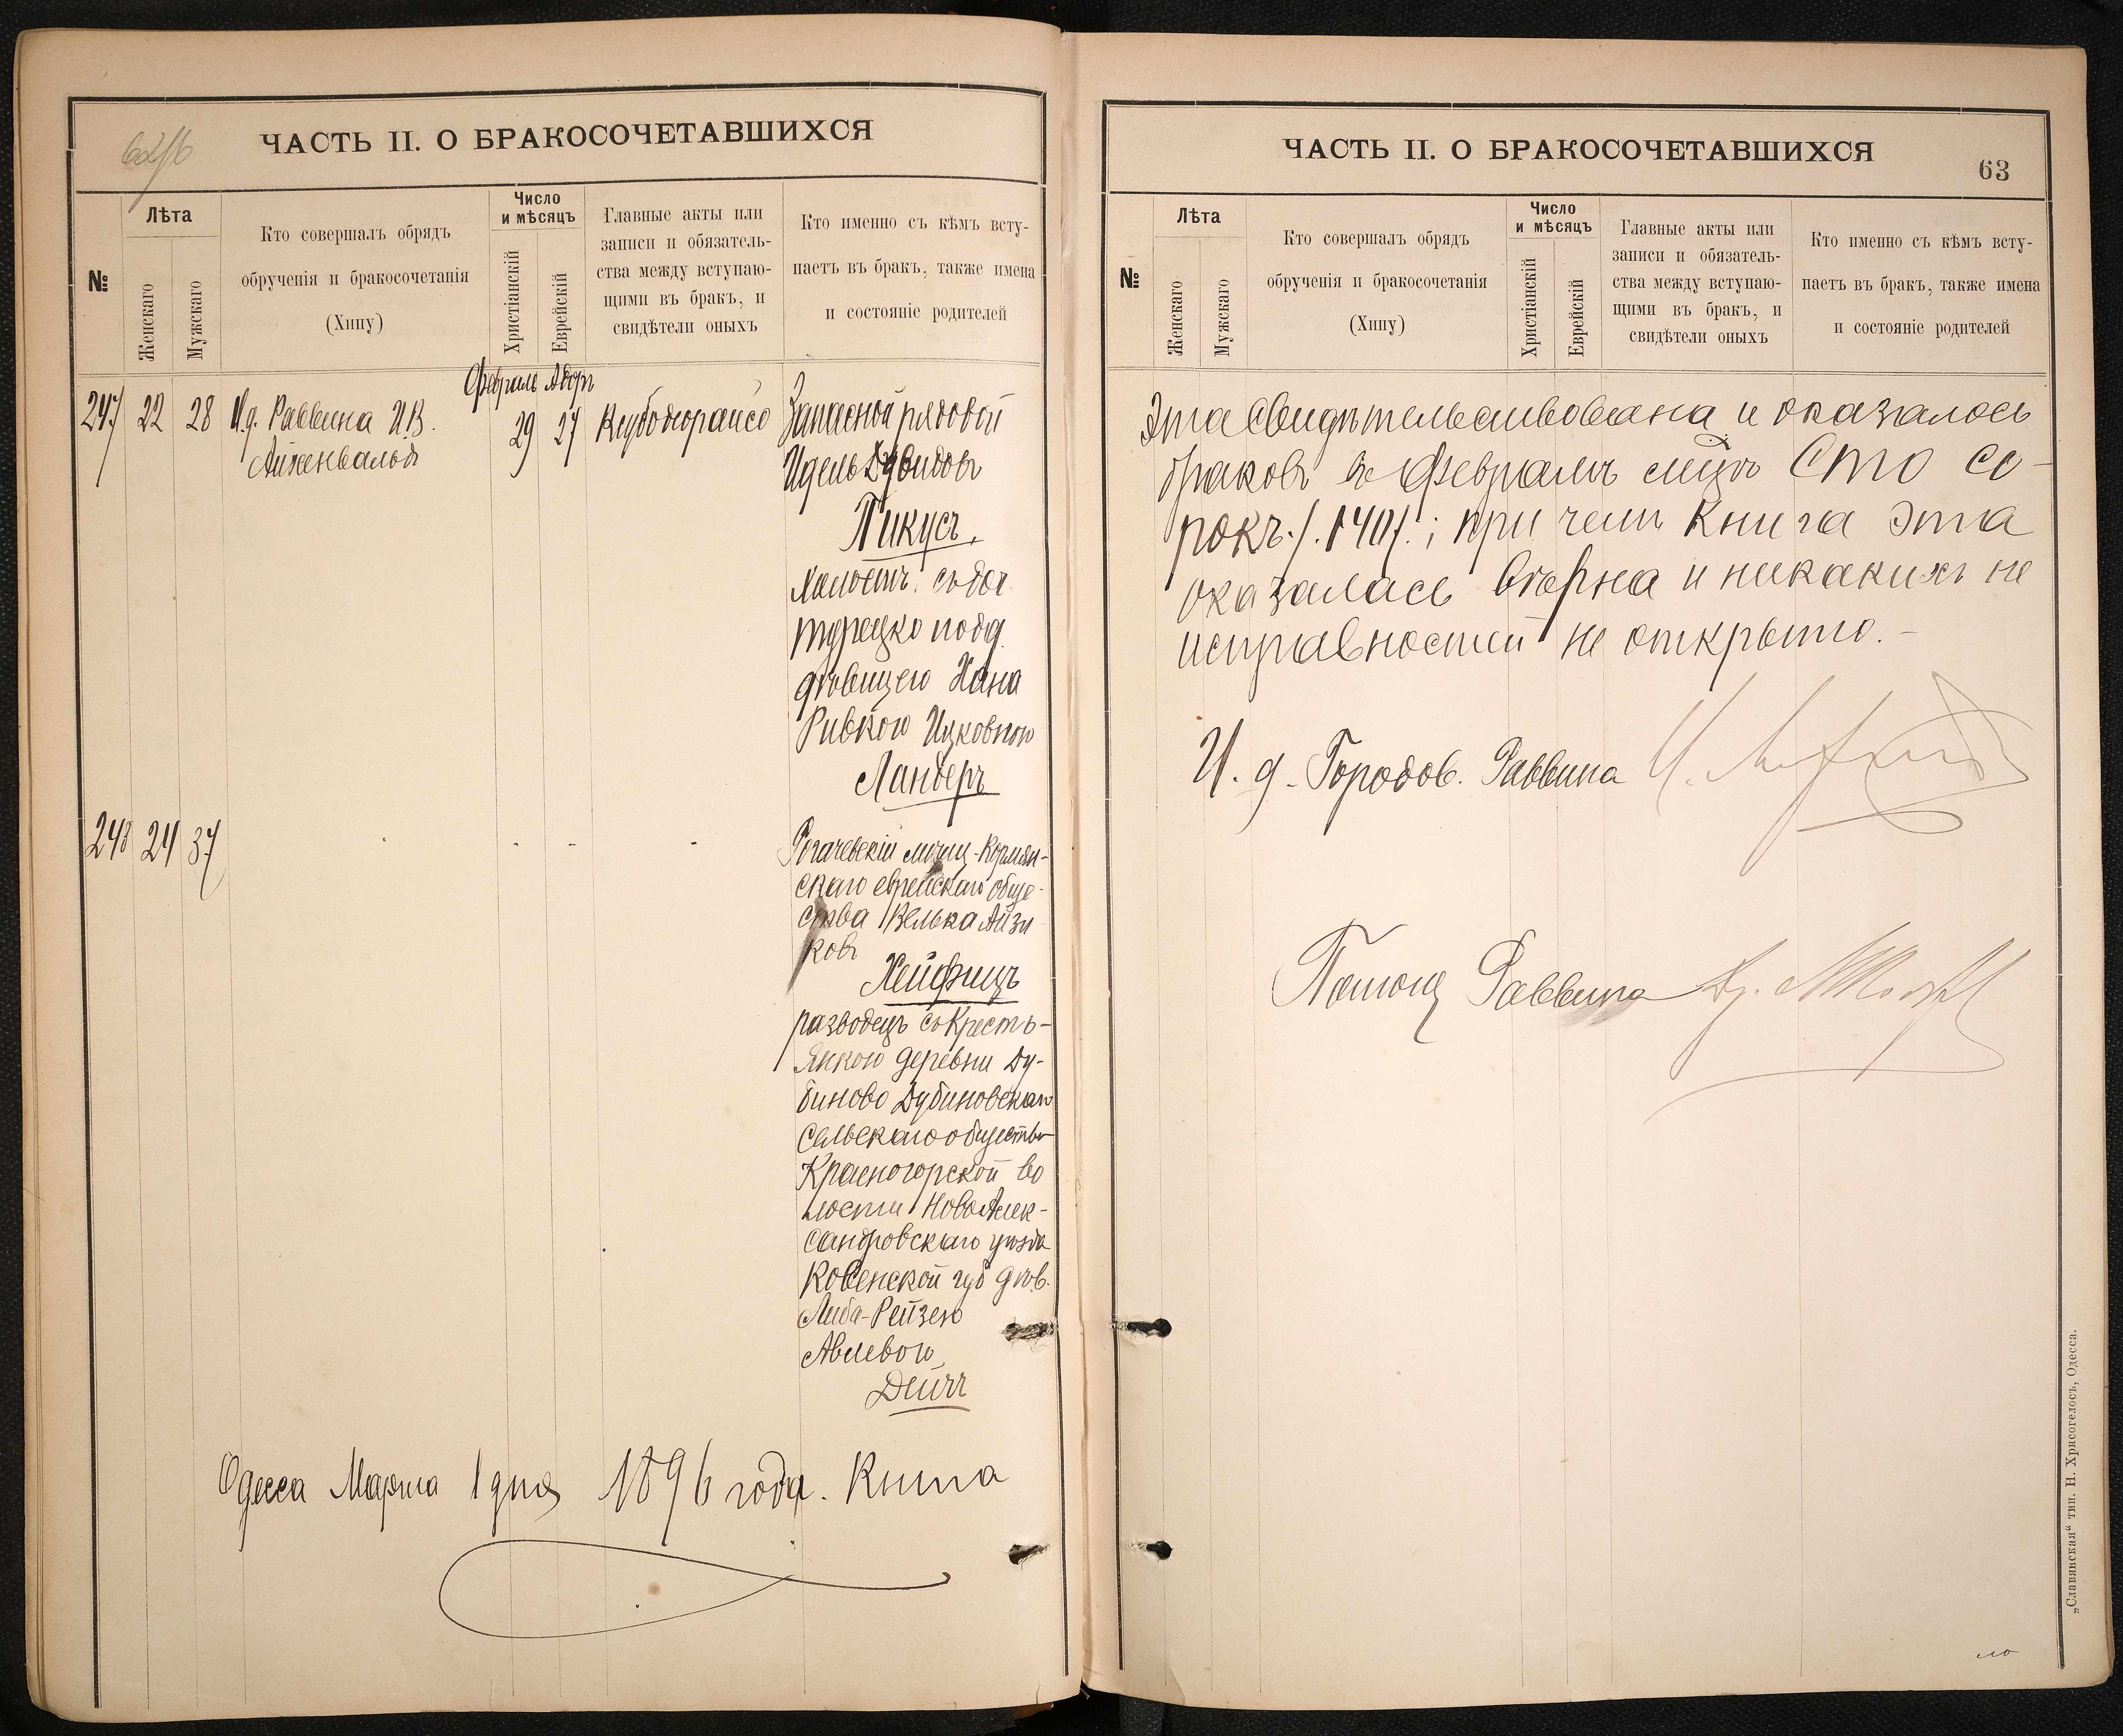 62/б
ЧАСТЬ II. О БРАКОСОЧЕТАВШИХСЯ
№
Лѣта
Женскаго
Мужскаго
Кто совершалъ обрядъ
обрученія и бракосочетанія
(Хипу)
Число
и мѣсяцъ
Христіанскій
Еврейскій
Главные акты или
записи и обязатель-
ства между вступаю-
щими въ бракъ, и
свидѣтели оныхъ
Кто именно съ кѣмъ всту-
паетъ въ бракъ, также имена
и состояніе родителей
Февраль Адоръ
247 22 28 И.д. Раввина И.В.
Айженвальдъ
29 27
Запасной рядовой
Идель Дувидовъ
Пикусъ,
холостъ. съ доч.
турецко подд.
дѣвицею Хана
Ривкою Ицковною
Ландеръ
248 24 37 - - - -
Рогачевскій мѣщ. Кормян-
скаго еврейскаго обще-
ства Велька Айзи
ковъ
Хейфицъ
разводецъ съ Кресть-
янкою деревни Ду-
биново Дубиновскаго
Сельскаго общества
Красногорской во
лости НовоАлек-
сандровскаго уѣзда
Ковенской губ дѣв.
Либа-Рейзею
Авлевою
Дейчъ
Одесса Марта 1 дня 1896 года. Книга
ЧАСТЬ II. О БРАКОСОЧЕТАВШИХСЯ
63
№
Лѣта
Женскаго
Мужскаго
Кто совершалъ обрядъ
обрученія и бракосочетанія
(Хипу)
Число
и мѣсяцъ
Христіанскій
Еврейскій
Главные акты или
записи и обязатель-
ства между вступаю-
щими въ бракъ, и
свидѣтели оныхъ
Кто именно съ кѣмъ всту-
паетъ въ бракъ, также имена
и состояніе родителей
Эта Свидѣтельствована и оказалось
браковъ въ Февралѣ мѣцѣ Сто со-
рокъ /.140/.; при чемъ Книга эта
оказалась вѣрна и никакихъ не
исправностей не открыто.-
И. д. Городов. Раввина
Помощ Раввина Др.
„Славянская“ тип. Н. Хрисогелосъ, Одесса.